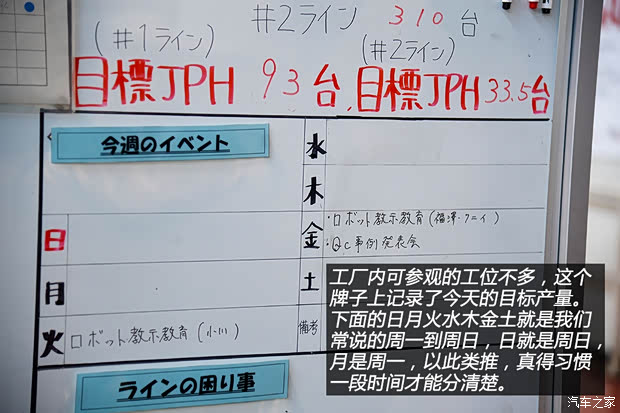 #2ライン 310台
(#1ライン)
(#2ライン)
目標JPH 93台.目標JPH 33.5台
今週のイベント
水
木
日
金
・ロボット教示教育(福澤・クニイ)
・Qc事例発表会
月
土
火
ロボット教示教育(小川)
備考
ラインの困り事
工厂内可参观的工位不多，这个
牌子上记录了今天的目标产量。
下面的日月火水木金土就是我们
常说的周一到周日，日就是周日，
月是周一，以此类推，真得习惯
一段时间才能分清楚。
汽车之家